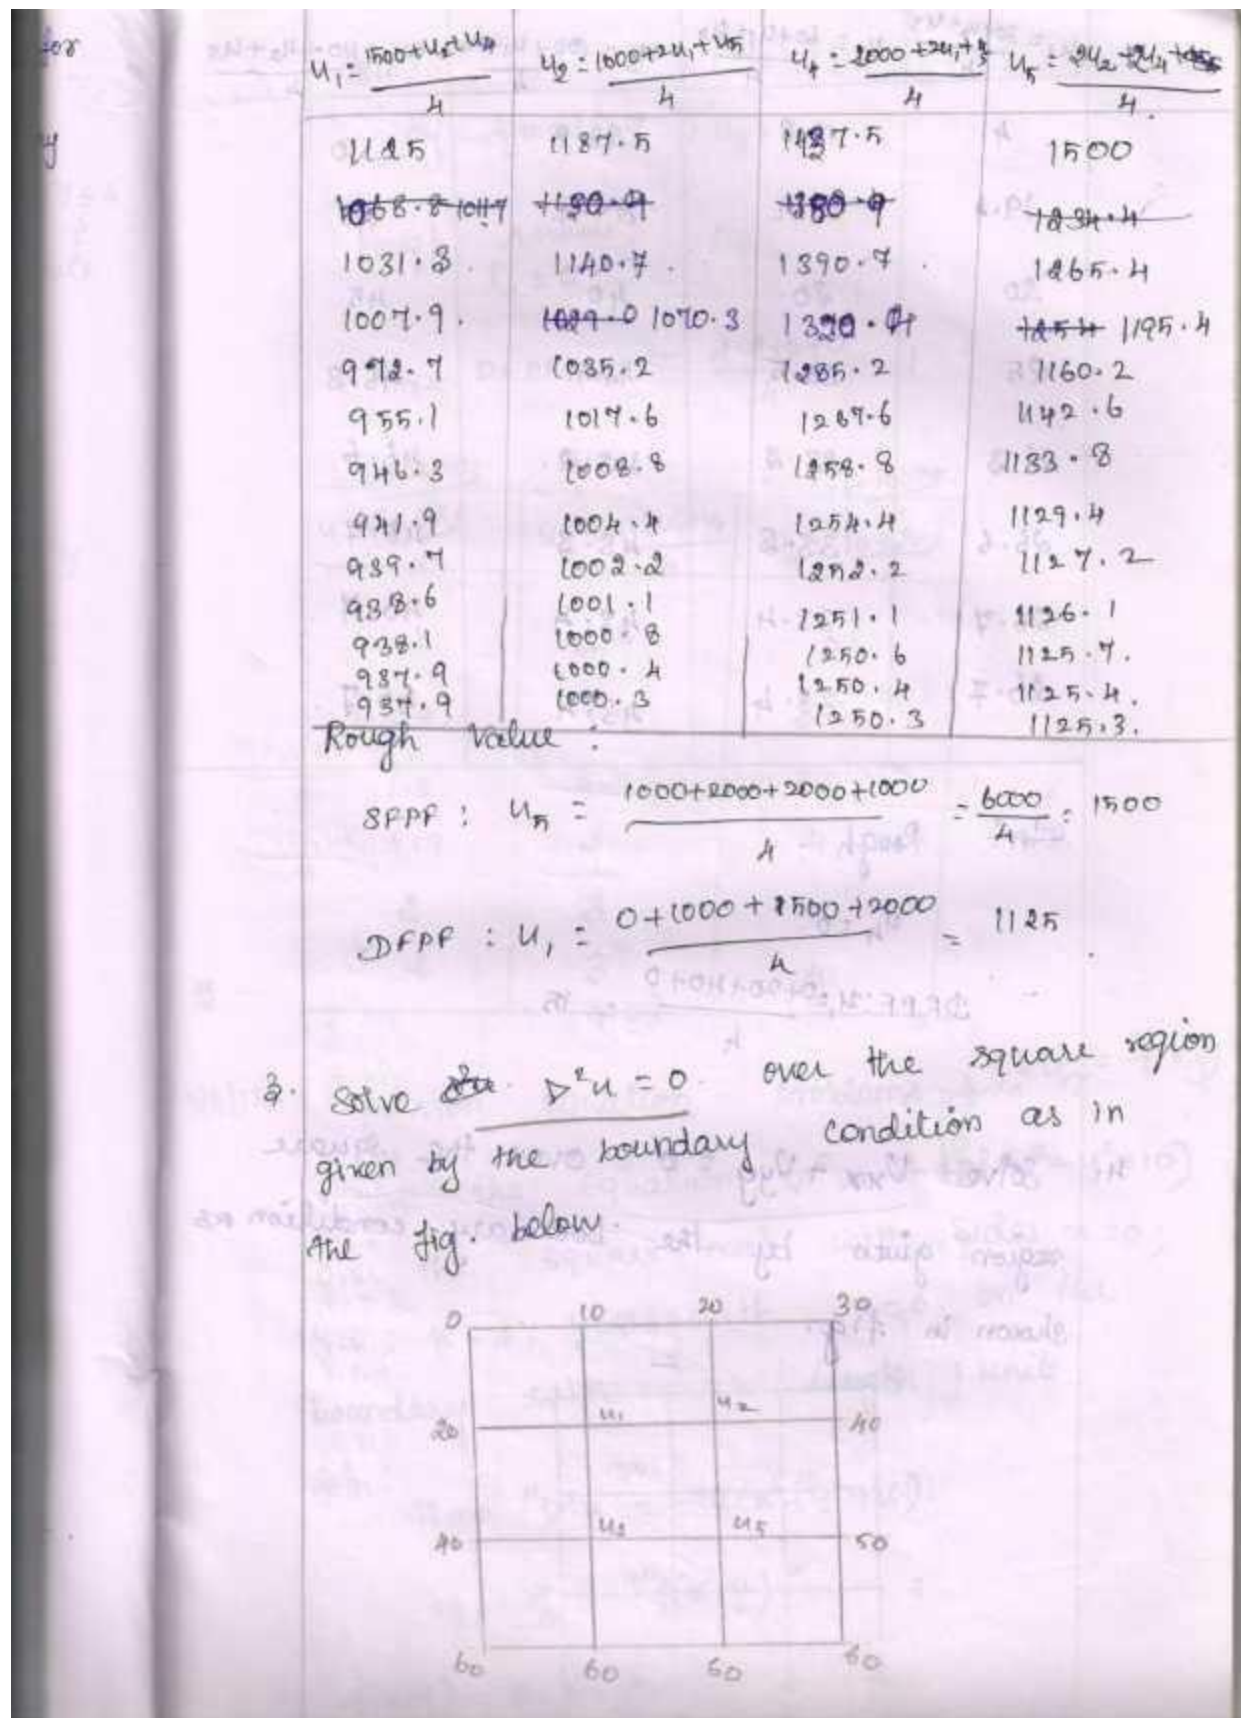 for
u₁ = (1500+u₂+u₄)/4 u₂ = (1000+2u₁+u₅)/4 u₄ = (2000+2u₁+u₅)/4 u₅ = (2u₂+2u₄+)/4.
1125 1187.5 1437.5 1500
1068.8 1047 1180.9 1380.9 1234.4
1031.3. 1140.7. 1390.7. 1265.4
1007.9. 1029.0 1070.3 1320.4 1254 1195.4
972.7 1035.2 1285.2 1160.2
955.1 1017.6 1267.6 1142.6
946.3 1008.8 1258.8 1133.8
941.9 1004.4 1254.4 1129.4
939.7 1002.2 1252.2 1127.2
938.6 1001.1 1251.1 1126.1
938.1 1000.8 1250.6 1125.7.
937.9 1000.4 1250.4 1125.4.
937.9 1000.3 1250.3 1125.3.
Rough Value :
SFPF : u₅ = (1000+2000+2000+1000)/4 = 6000/4 = 1500
DFPF : u₁ = (0+1000+1500+2000)/4 = 1125.
3. Solve ▷²u = 0. over the square region
given by the boundary condition as in
the fig. below.
0 10 20 30
u₁ u₂
20 40
u₃ u₅
40 50
60 60 60 60